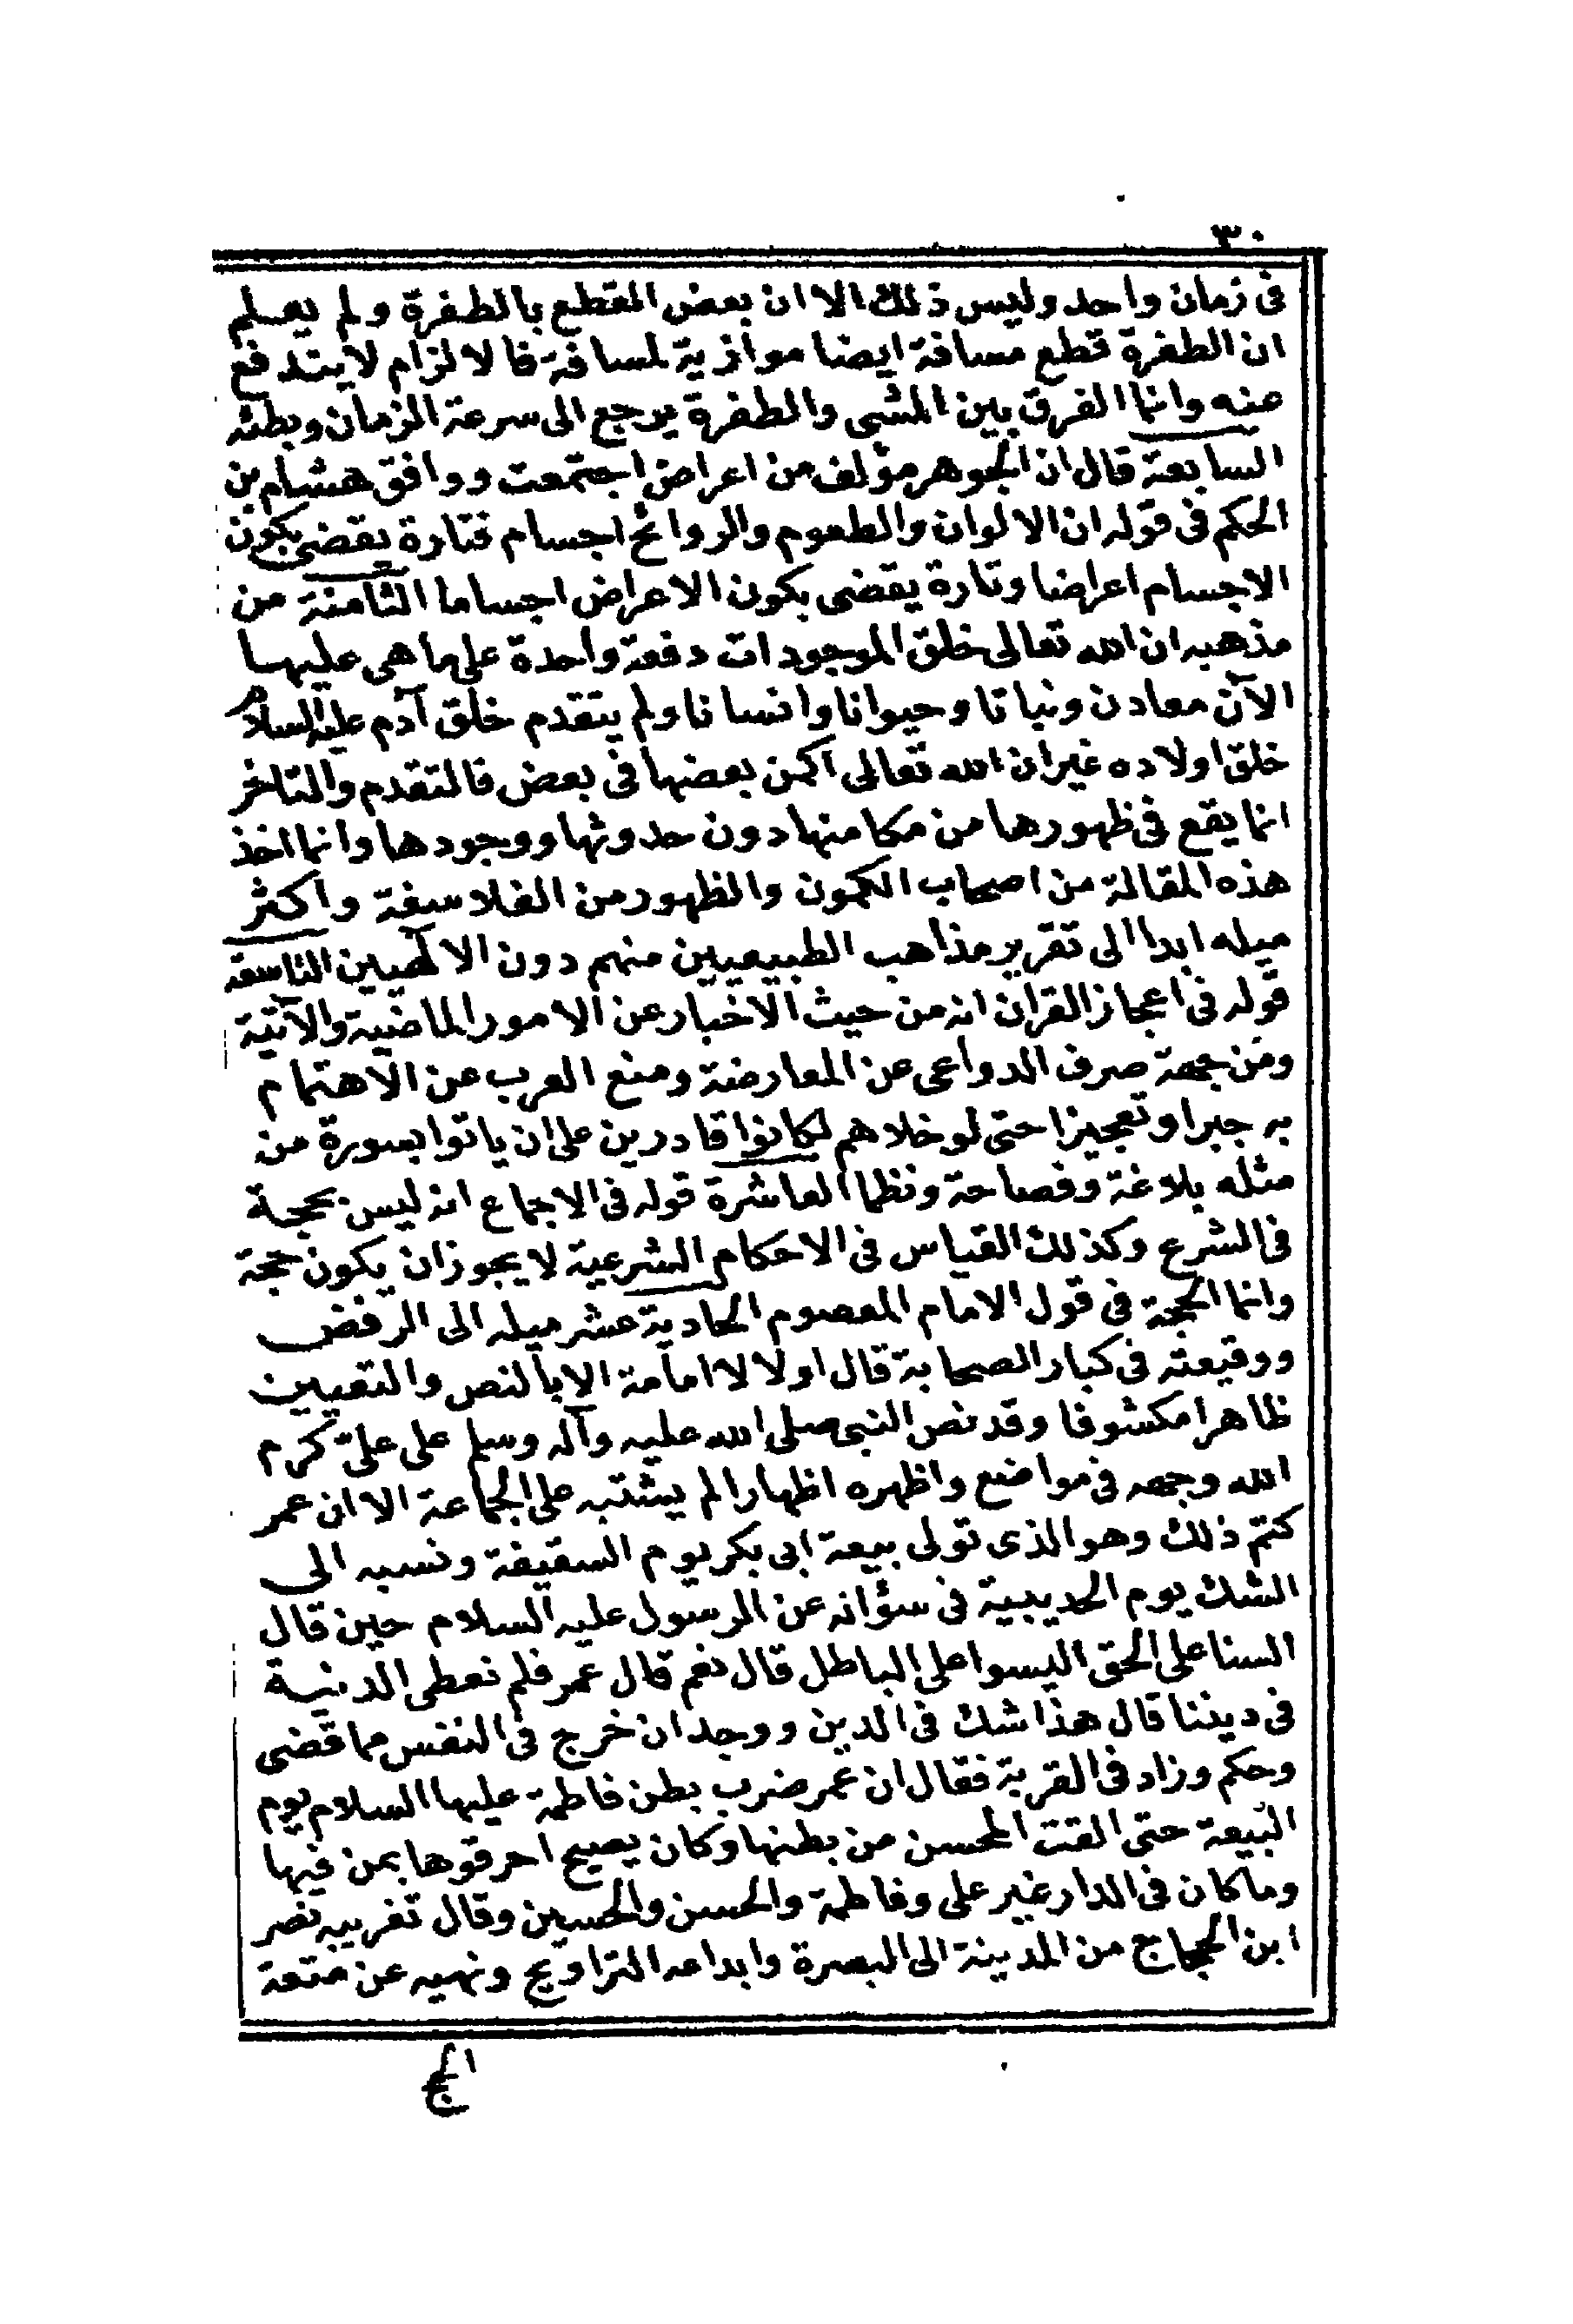 ٣٠
فى زمان واحد وليس ذلك الا ان بعض القطع بالطفرة ولم يعلم
ان الطفرة قطع مسافة ايضا موازية لمسافة فالا لزام لا يندفع
عنه وانما الفرق بين المشى والطفرة يرجع الى سرعة الزمان وبطئه
السابعة قال ان الجوهر مؤلف من اعراض اجتمعت ووافق هشام بن
الحكم فى قوله ان الالوان والطعوم والروائح اجسام فتارة يقضى بكون
الاجسام اعراضا وتارة يقضى بكون الاعراض اجساما الثامنة من
مذهبه ان الله تعالى خلق الموجودات دفعة واحدة على ما هى عليها
الآن معادن ونباتا وحيوانا وانسانا ولم يتقدم خلق آدم عليه السلام
خلق اولاده غير ان الله تعالى اكمن بعضها فى بعض فالتقدم والتاخر
انما يقع فى ظهورها من مكامنها دون حدوثها ووجودها وانما اخذ
هذه المقالة من اصحاب الكمون والظهور من الفلاسفة واكثر
ميله ابدا الى تقرير مذاهب الطبيعيين منهم دون الالهيين التاسعة
قوله فى اعجاز القران انه من حيث الاخبار عن الامور الماضية والآتية
ومن جهة صرف الدواعى عن المعارضة ومنع العرب عن الاهتمام
به جبرا وتعجيزا حتى لو خلاهم لكانوا قادرين على ان ياتوا بسورة من
مثله بلاغة وفصاحة ونظما العاشرة قوله فى الاجماع انه ليس بحجة
فى الشرع وكذلك القياس فى الاحكام الشرعية لا يجوز ان يكون حجة
وانما الحجة فى قول الامام المعصوم الحادية عشر ميله الى الرفض
ووقيعته فى كبار الصحابة قال اولا لا امامة الا بالنص والتعيين
ظاهرا مكشوفا وقد نص النبى صلى الله عليه وآله وسلم على علىّ كرم
الله وجهه فى مواضع واظهره اظهارا لم يشتبه على الجماعة الا ان عمر
كتم ذلك وهو الذى تولى بيعة ابى بكر يوم السقيفة ونسبه الى
الشك يوم الحديبية فى سؤاله عن الرسول عليه السلام حين قال
السنا على الحق اليسوا على الباطل قال نعم قال عمر فلم نعطى الدنية
فى ديننا قال هذا شك فى الدين ووجدان خرج فى النفس مما قضى
وحكم وزاد فى القرية فقال ان عمر ضرب بطن فاطمة عليها السلام يوم
البيعة حتى القت المحسن من بطنها وكان يصيح احرقوها بمن فيها
وما كان فى الدار غير على وفاطمة والحسن والحسين وقال تغريبه نصر
ابن الحجاج من المدينة الى البصرة وابداعه التراويح ونهيه عن متعة
الحج